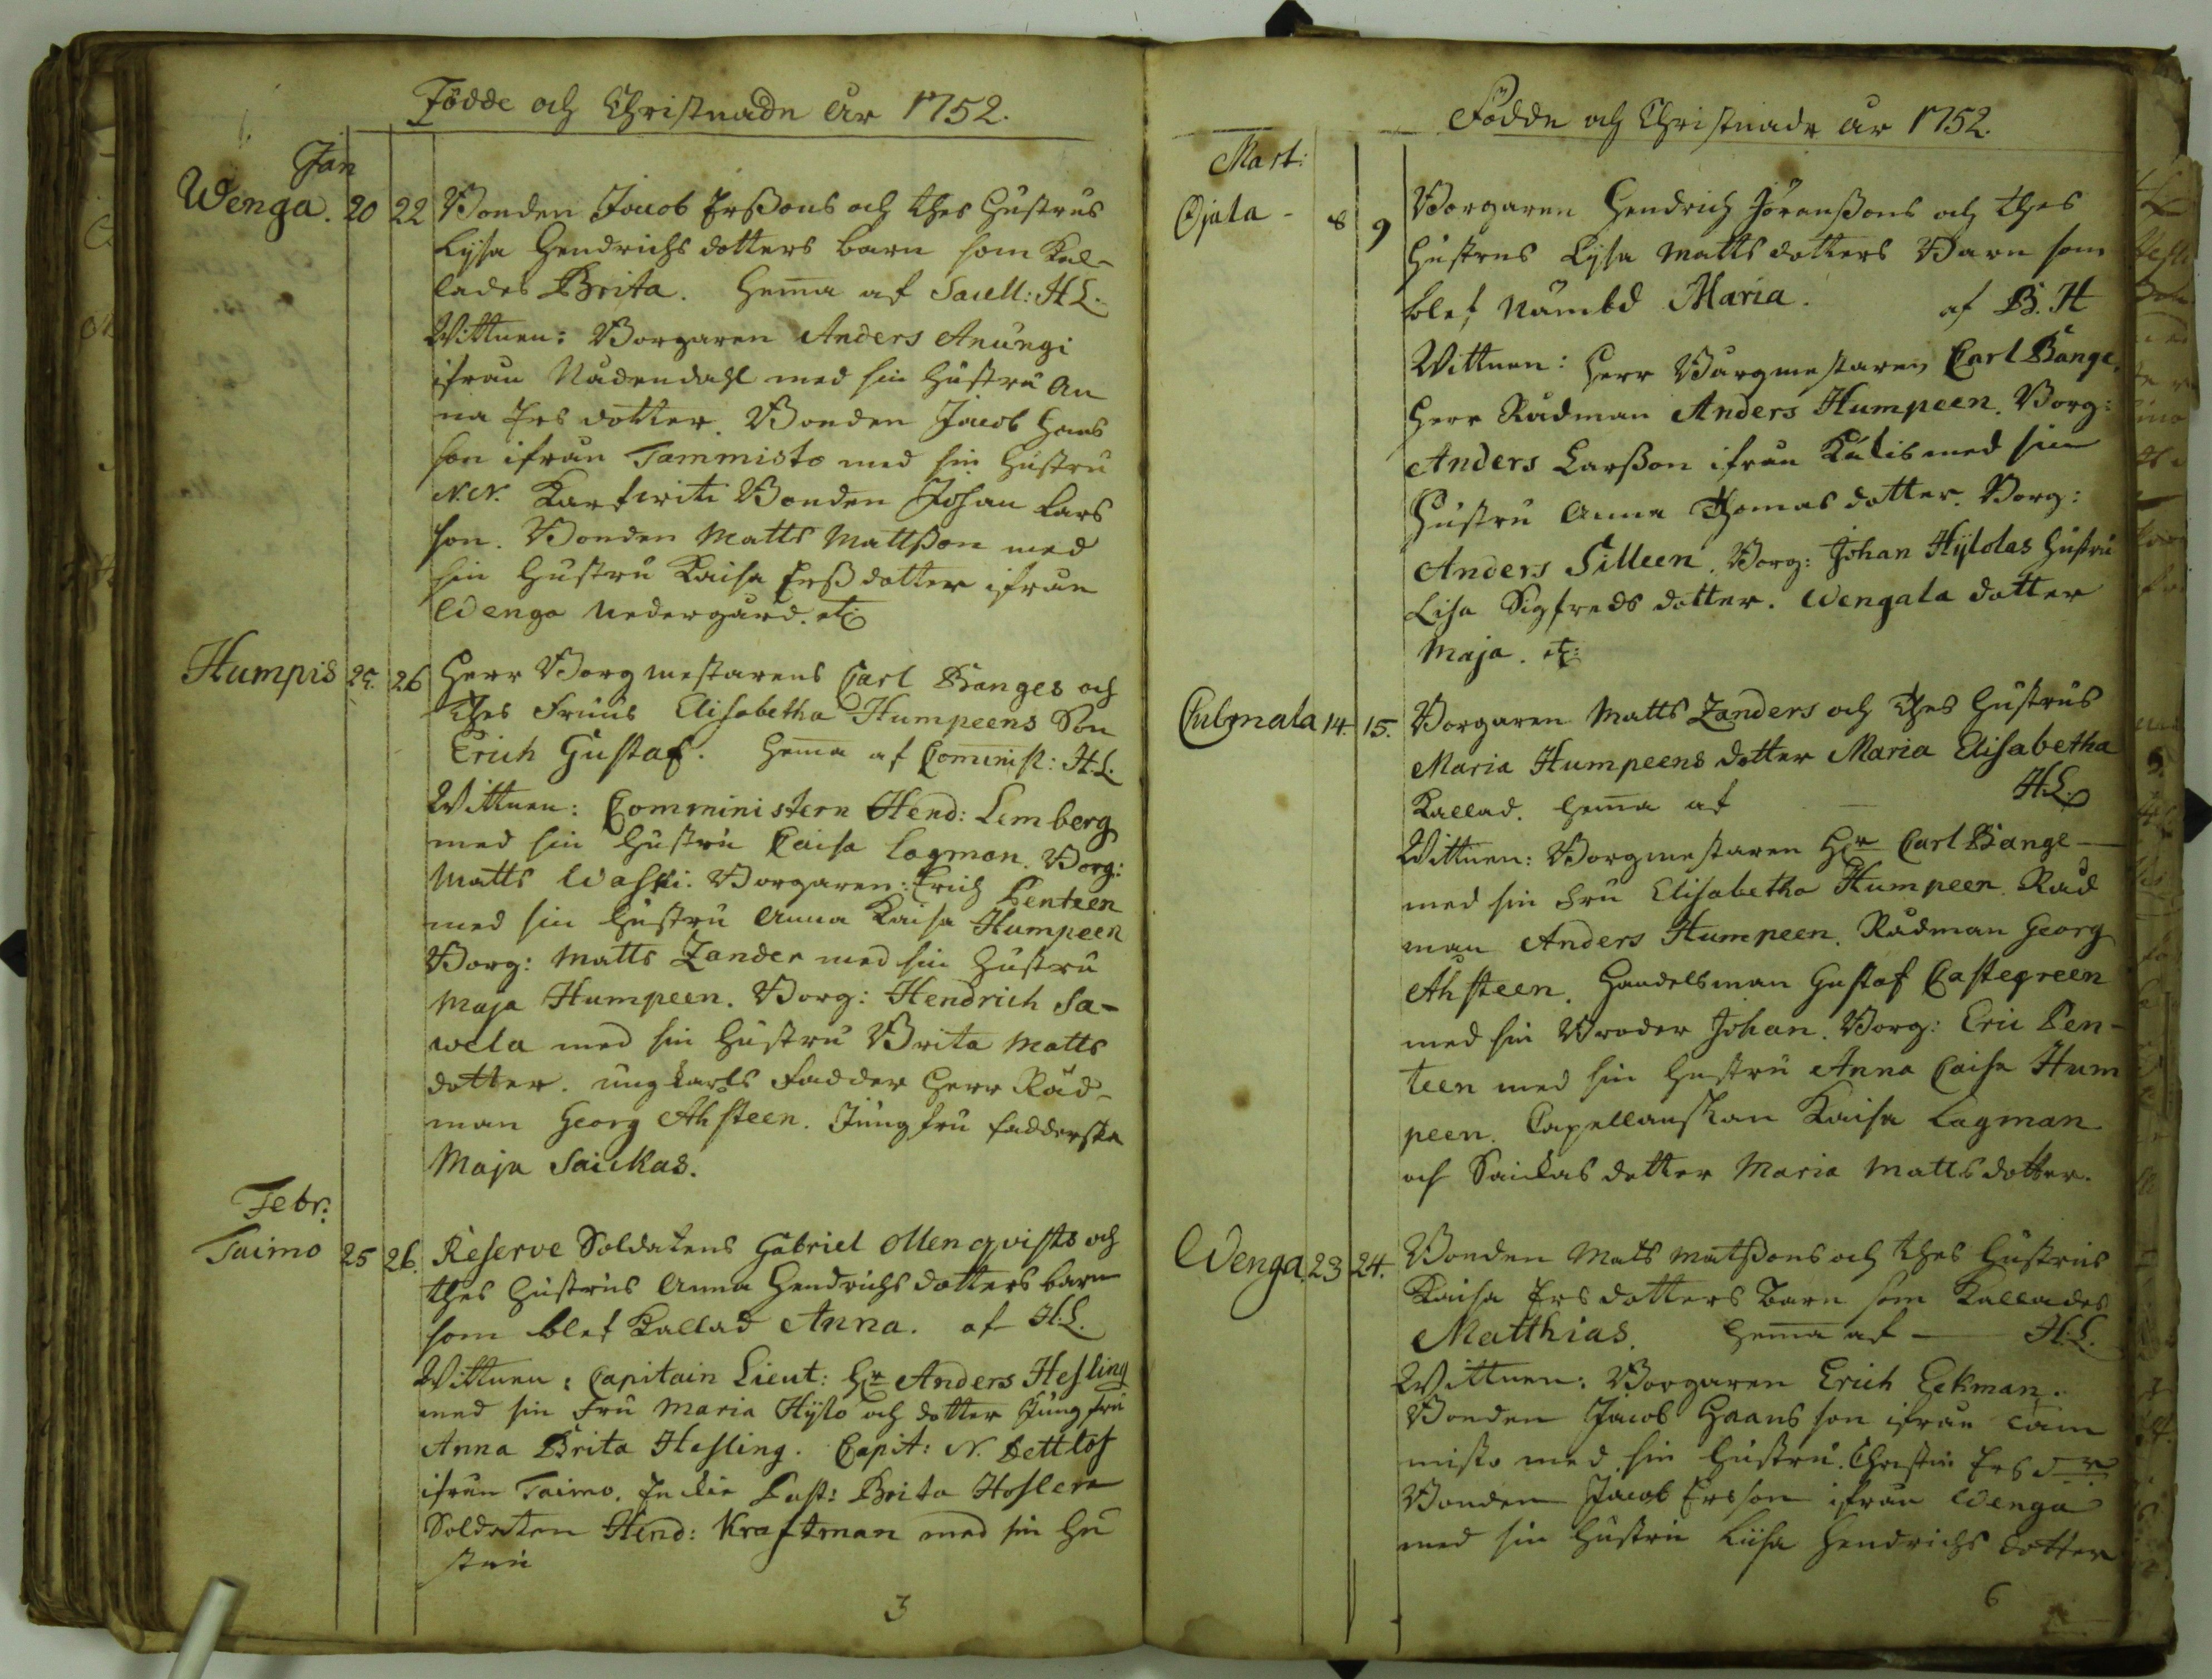 Födde och Christnade År 1752.
Jan
Wenga. 20 22 Bonden Jacob Ersßons och thes Hustrus
Lysa Hendrichs dotters barn som Kal-
lades Brita. Hemma af Sacell: H L.
Wittnen: Borgaren Anders Anungi
ifrån Nådendahl med sin Hustru An
na Ers dotter. Bonden Jacob Hans
son ifrån Tammisto med sin Hustru
N.N. Bonden Johan Lars
son. Bonden Matts Mattsson med
sin Hustru Kaisa Ersdotter ifrån
Wenga Nedergård. etc
Humpis 25. 26 Herr Borgmestarens Carl Banges och
thes Fruus Elisabetha Humpeens Son
Erich Gustaf. Hemma af Comminist: H.L.
Wittnen: Comministern Hend: Lemberg
med sin Hustru Caisa Lagman. Borg:
Matts Waski. Borgaren: Erich Penteen
med sin Hustru Anna Kaisa Humpeen
Borg: Matts Zander med sin Hustru
Maja Humpeen. Borg: Hendrich Sa-
wela med sin Hustru Brita Matts
dotter. ungkarls Fadder Herr Råd-
man Georg Ahsteen. Jungfru fadderska
Maja Saickas.
Febr:
Taimo 25 26. Reserve Soldatens Gabriel Ollenqvists och
thes Hustrus Anna Hendrichs dotters barn
som blef Kallad Anna. af H.L.
Wittnen: Capitain Lieut: Hr Anders Hesling
med sin Fru Maria Hylo och dotter Jungfru
Anna Brita Hesling. Capit: N. Dettlof
ifrån Taimo. Past: Brita
Soldaten Hend: Kraftman med sin Hu
stru
3
Födde och Christnade År 1752.
Mart:
Ojala - 8 9 Borgaren Hendrich Jöransßons och thes
Hustrus Lysa Matts dotters Barn som
blef Nämbd Maria. af B. H
Wittnen: Herr Burgmestaren Carl Bange,
Herr Rådman Anders Humpeen. Borg:
Anders Larsson ifrån Kulis med sin
Hustru Anna Thomas dotter. Borg:
Anders Silleen. Borg: Johan Hylolas Hustru
Lisa Sigfreds dotter. Wengala dotter
Maja. etc:
Culgnala 14. 15. Borgaren Matts Zanders och thes Hustrus
Maria Humpeens dotter Maria Elisabetha
Kallad. Hemma af H.L.
Wittnen: Borgmestaren Hr Carl Bange
med sin Fru Elisabetha Humpeen. Råd
man Anders Humpeen. Rådman Georg
Ahsteen. Handelsman Gustaf Castegreen
med sin Broder Johan. Borg: Eric Pen-
teen med sin Hustru Anna Caisa Hum
peen. Capellanskan Kaisa Lagman
och Saickas dotter Maria Mattsdotter.
Wenga 23 24. Bonden Mats Matsßons och thes Hustrus
Kaisa Ers dotters Barn som Kallades
Matthias. Hemma af H.L.
Wittnen: Borgaren Erich Eckman.
Bonden Jacob Haans son ifrån Tam
misto med sin Hustru. Christin Ers dr
Bonden Jacob Ersson ifrån Wenga
med sin Hustru Liisa Hendrichs dotter
6